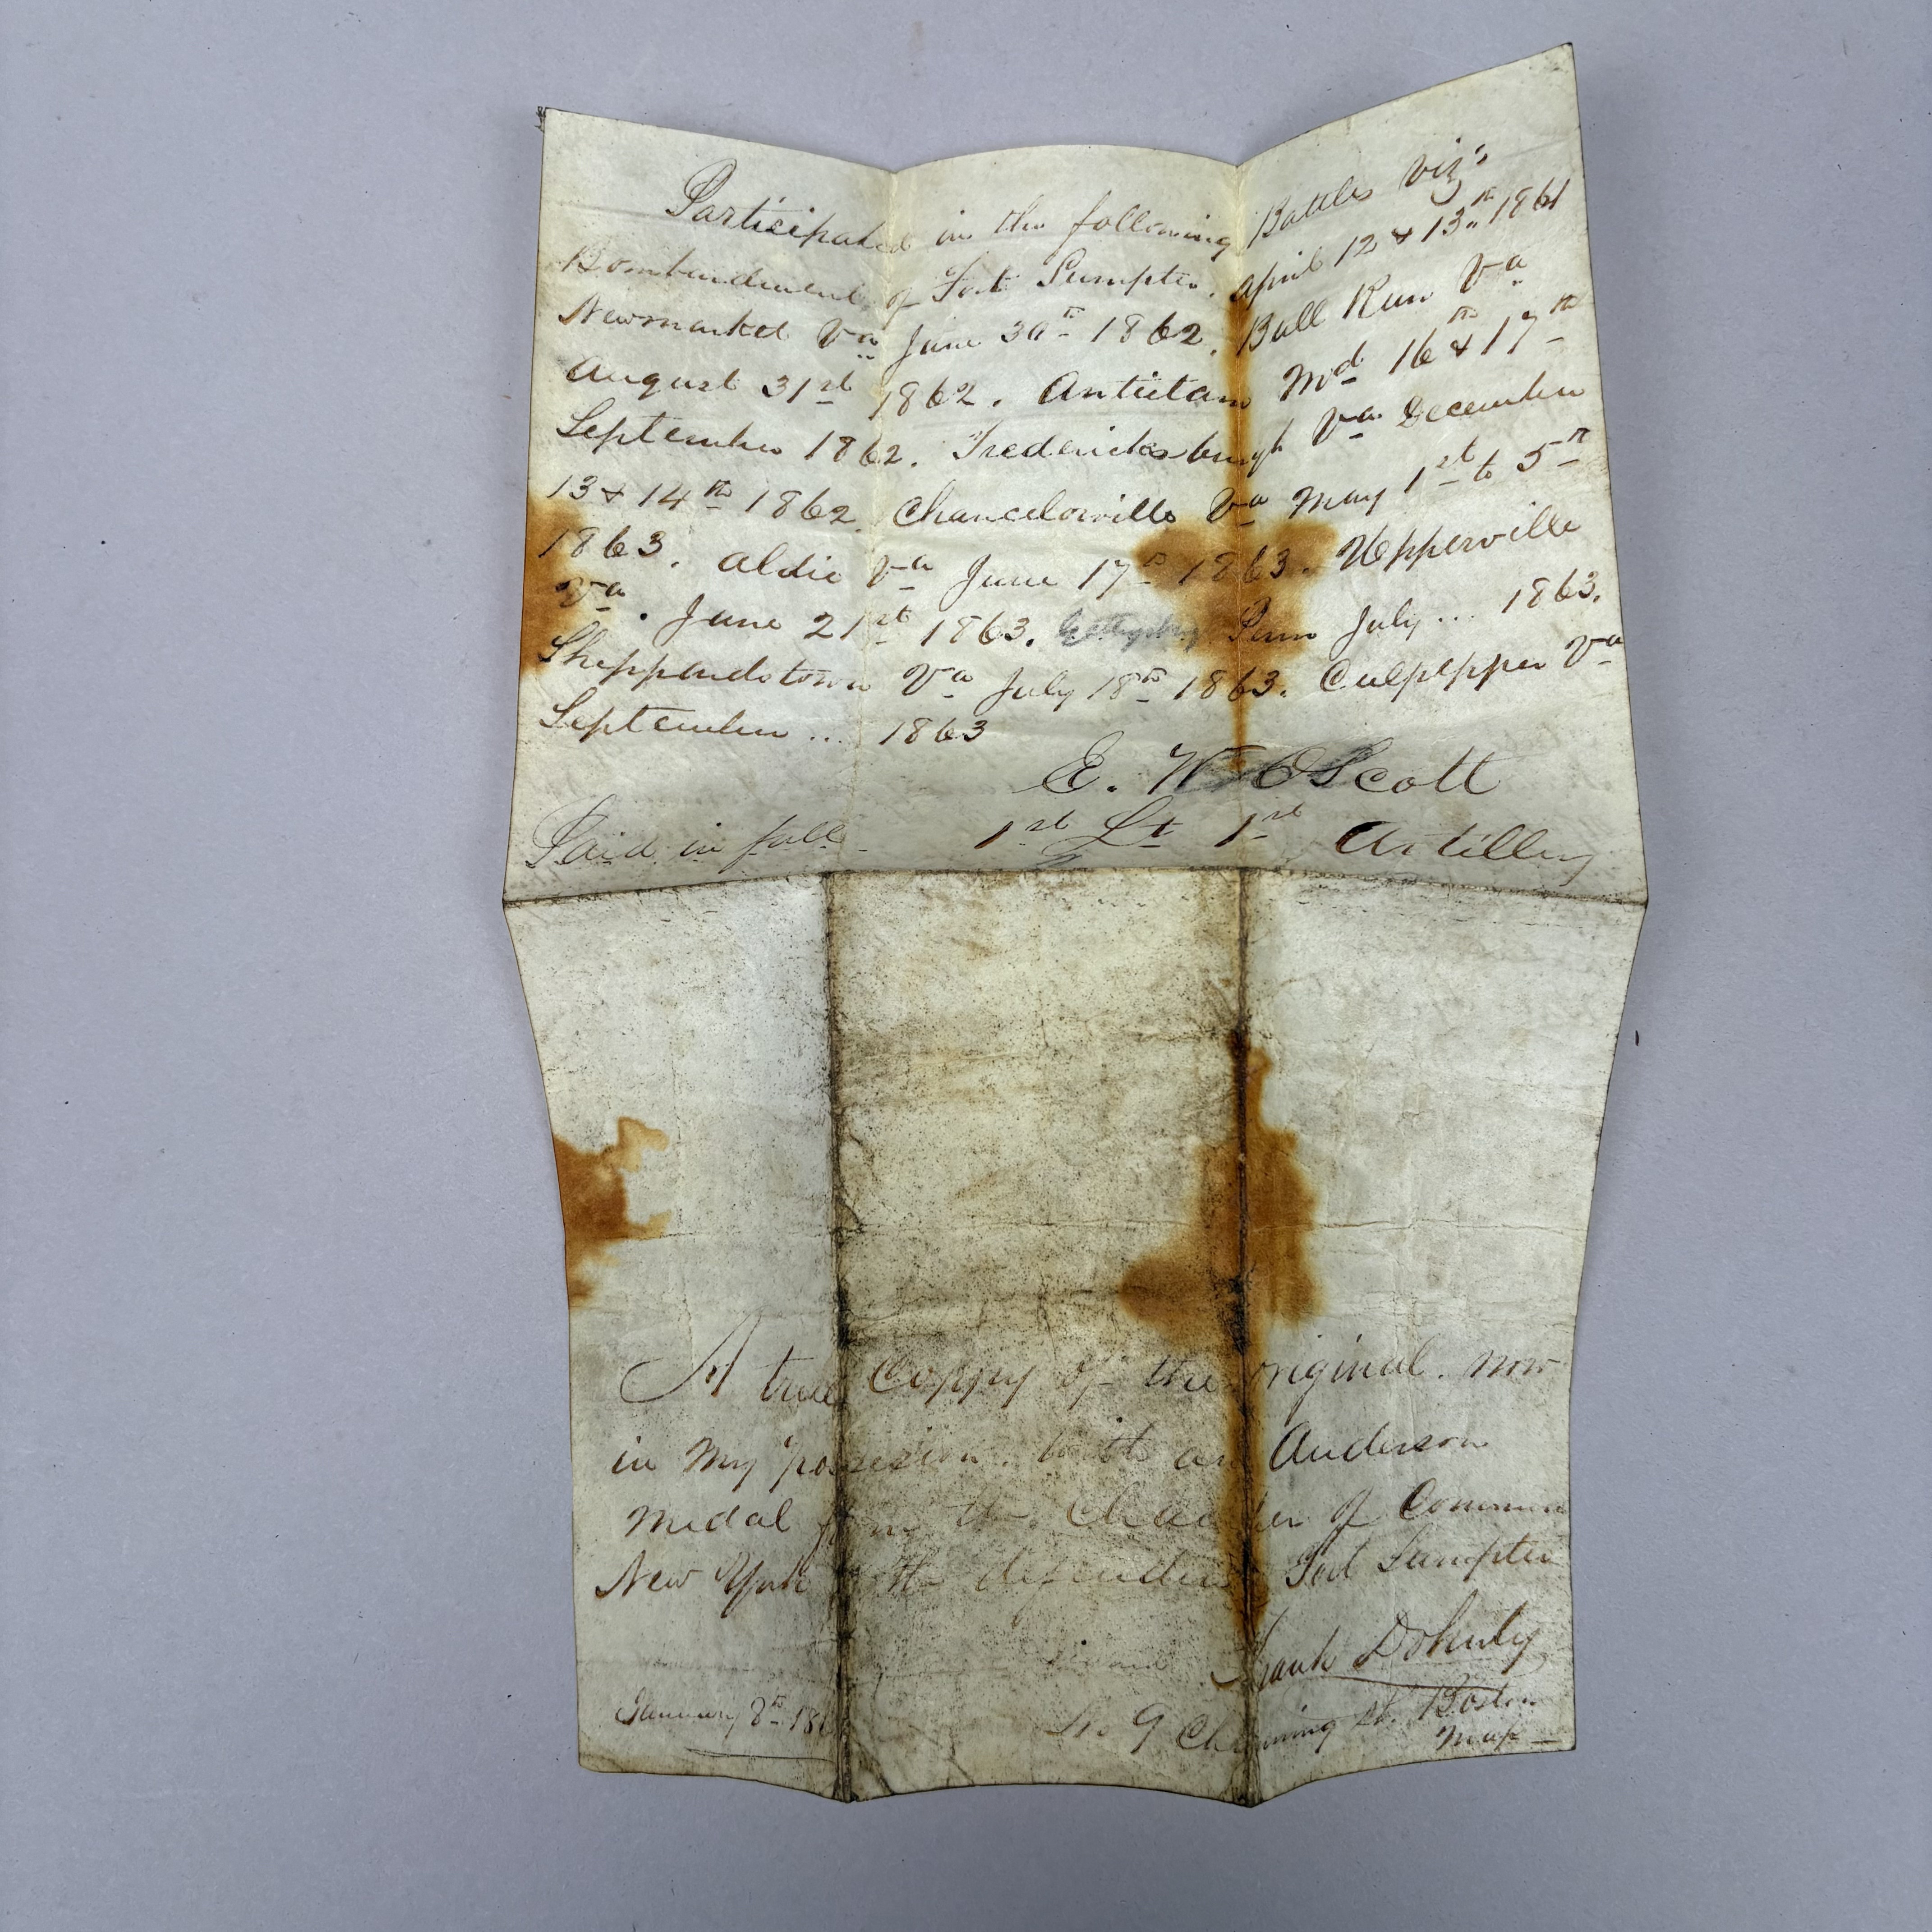 Participated in the following Battles Viz's
Bombardment of Fort Sumpter. April 12 & 13th 1861
Newmarket Va June 30th 1862. Bull Run Va
August 31st 1862. Antietam Md 16th & 17th
September 1862. Fredericksburgh Va December
13 & 14th 1862. Chancelorville Va May 1st to 5th
1863. Aldie Va June 17th 1863. Upperville
Va. June 21st 1863. Gettysburg Penn July ... 1863.
Sheppardstown Va July 18th 1863. Culpepper Va
September ... 1863
E. W. OScott
Paid in full 1st Lt 1st Artillery
A true Coppy of the original. now
in my possesion. with an Anderson
Medal from the Chamber of Commerce
New York to the defenders Fort Sumpter
Frank Doherty
January 8th
No 9 Channing St. Boston
Mass